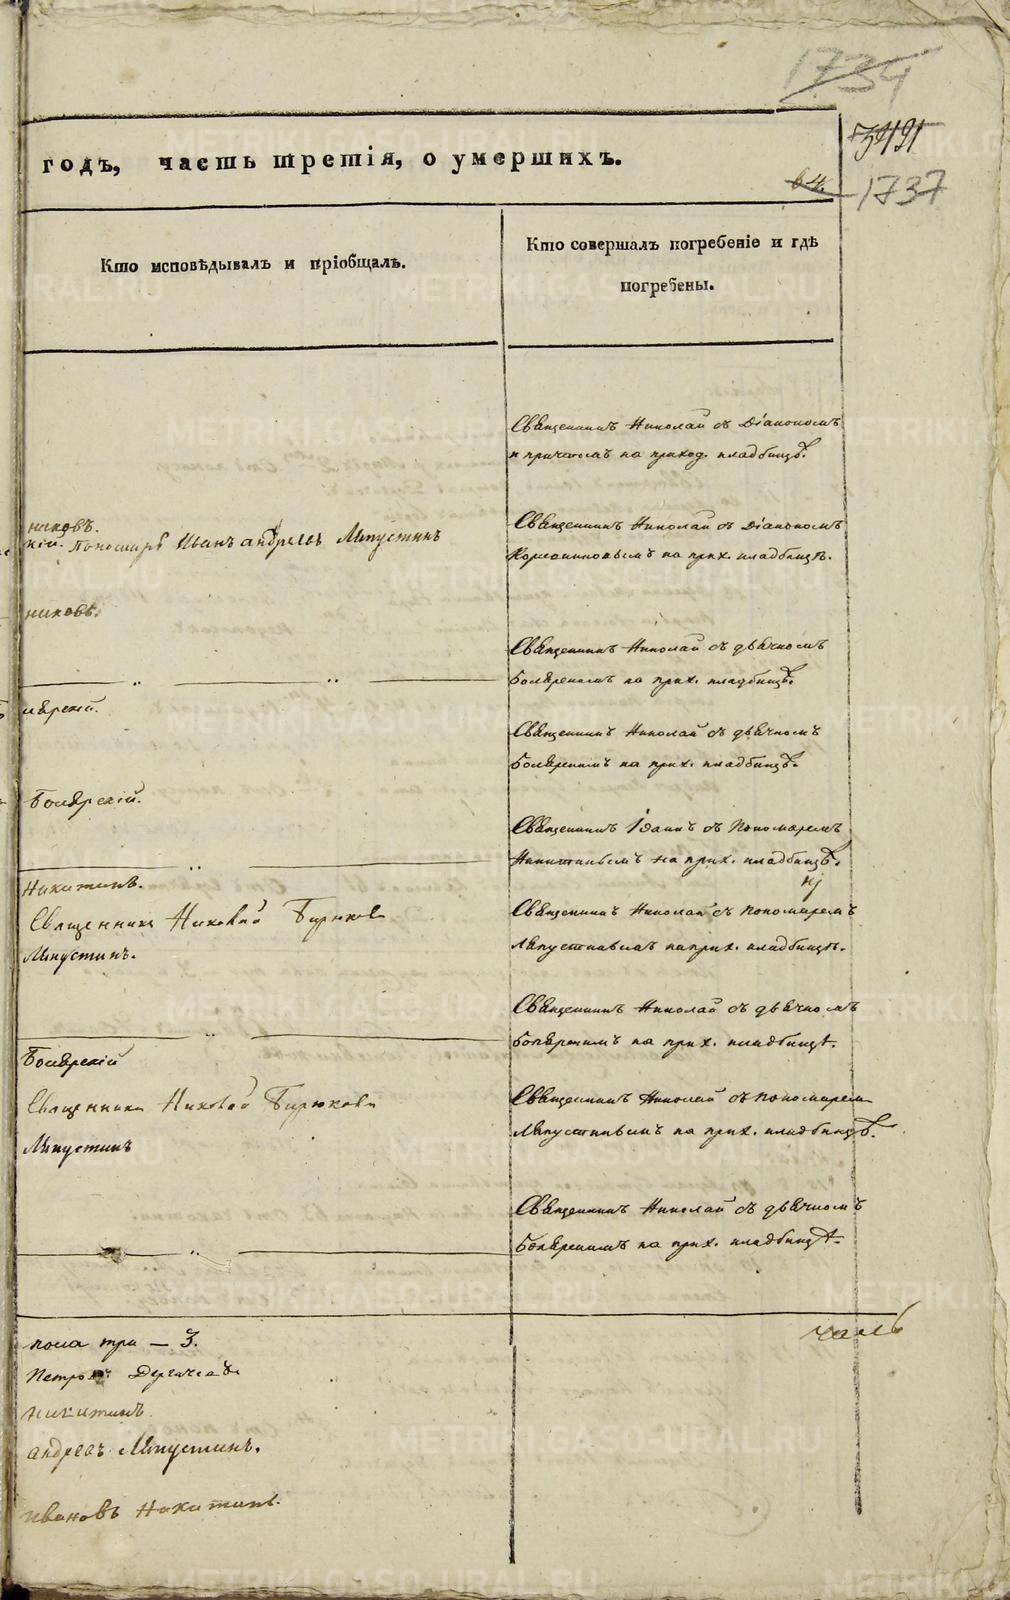 1734
годъ, часть третія, о умершихъ.
3491
64.
1737
Кто исповѣдывалъ и пріобщалъ.
Кто совершалъ погребеніе и гдѣ
погребены.
Священникъ Николай съ Діакономъ
и причтомъ на приход. кладбищѣ.
никовъ.
кій. Пономарь Иванъ Андреевъ Ляпустинъ
Священникъ Николай съ Діакономъ
на прих. кладбищѣ.
никовъ.
Священникъ Николай съ дьячкомъ
Боярскимъ на прих. кладбищѣ.
ярскій.
Священникъ Николай съ дьячкомъ
Боярскимъ на прих. кладбищѣ.
Боярскій.
Священникъ Іоаннъ съ Пономаремъ
Никитинымъ на прих. кладбищѣ.
Никитинъ.
Священникъ Николай Бирюковъ
Священникъ Николай съ пономаремъ
Ляпустинъ.
Ляпустинымъ на прих. кладбищѣ.
Священникъ Николай съ дьячкомъ
Боярскимъ на прих. кладбищѣ.
Боярскій
Священникъ Николай Бирюковъ
Священникъ Николай съ пономаремъ
Ляпустинъ
Ляпустинымъ на прих. кладбищѣ.
Священникъ Николай съ дьячкомъ
Боярскимъ на прих. кладбищѣ.
пола три — 3.
Петровъ Дерягинъ
Никитинъ
Андреевъ Ляпустинъ.
Ивановъ Никитинъ.
METRIKI.GASO-URAL.RU